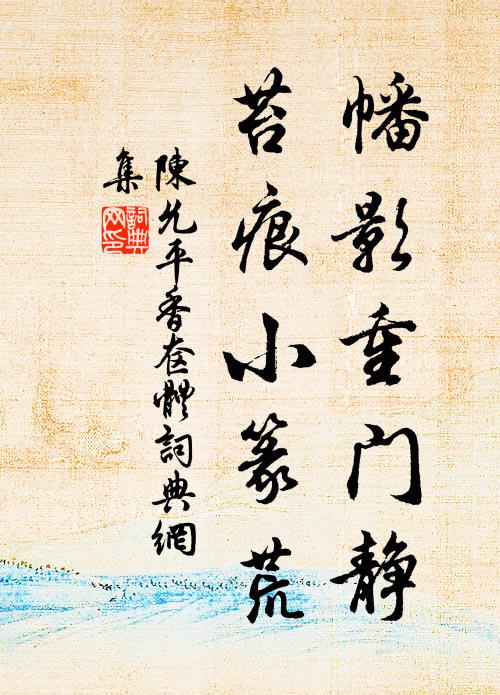 幡影重门静
苔痕小篆荒
陳允平香奩體詞典網
集
詞典網印